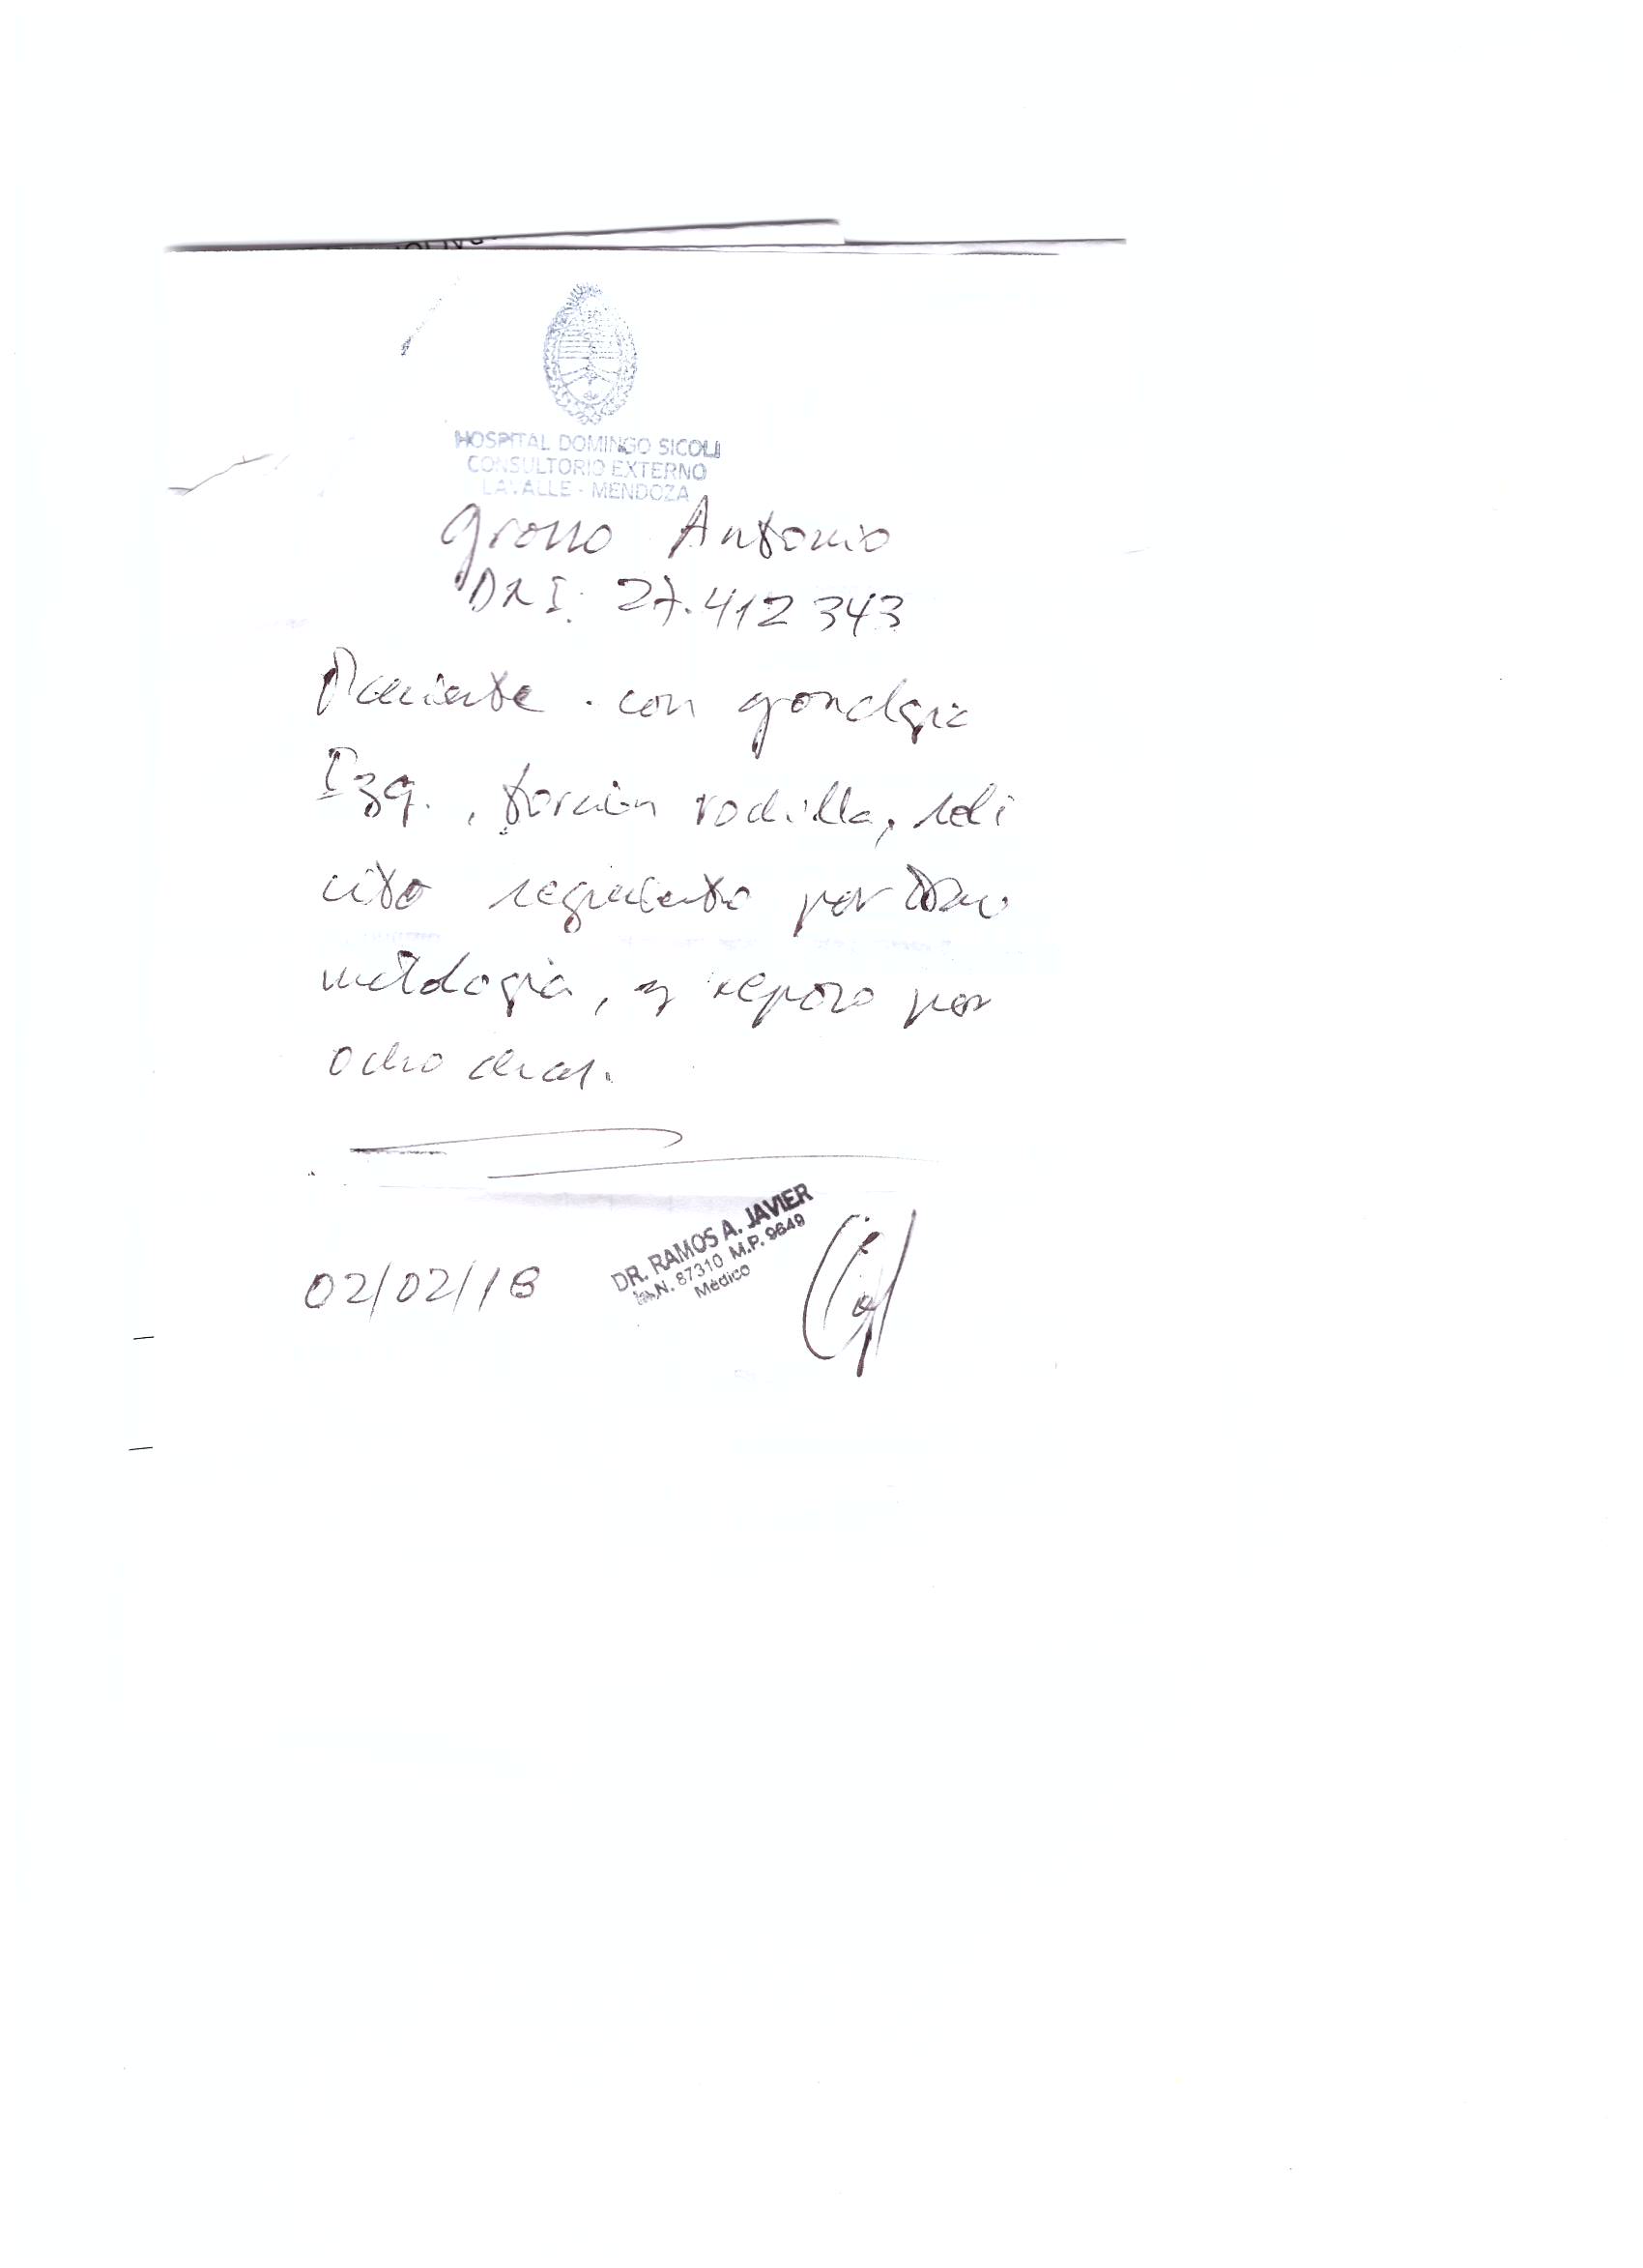 HOSPITAL DOMINGO SICOLI
CONSULTORIO EXTERNO
LAVALLE - MENDOZA
Grosso Antonio
DNI: 27.412 343
Paciente con gonalgia
Izq., torción rodilla, soli
cito seguimiento por trau
matología, y reposo por
ocho días.
02/02/18
DR. RAMOS A. JAVIER
M.N. 87310 M.P. 9649
Médico